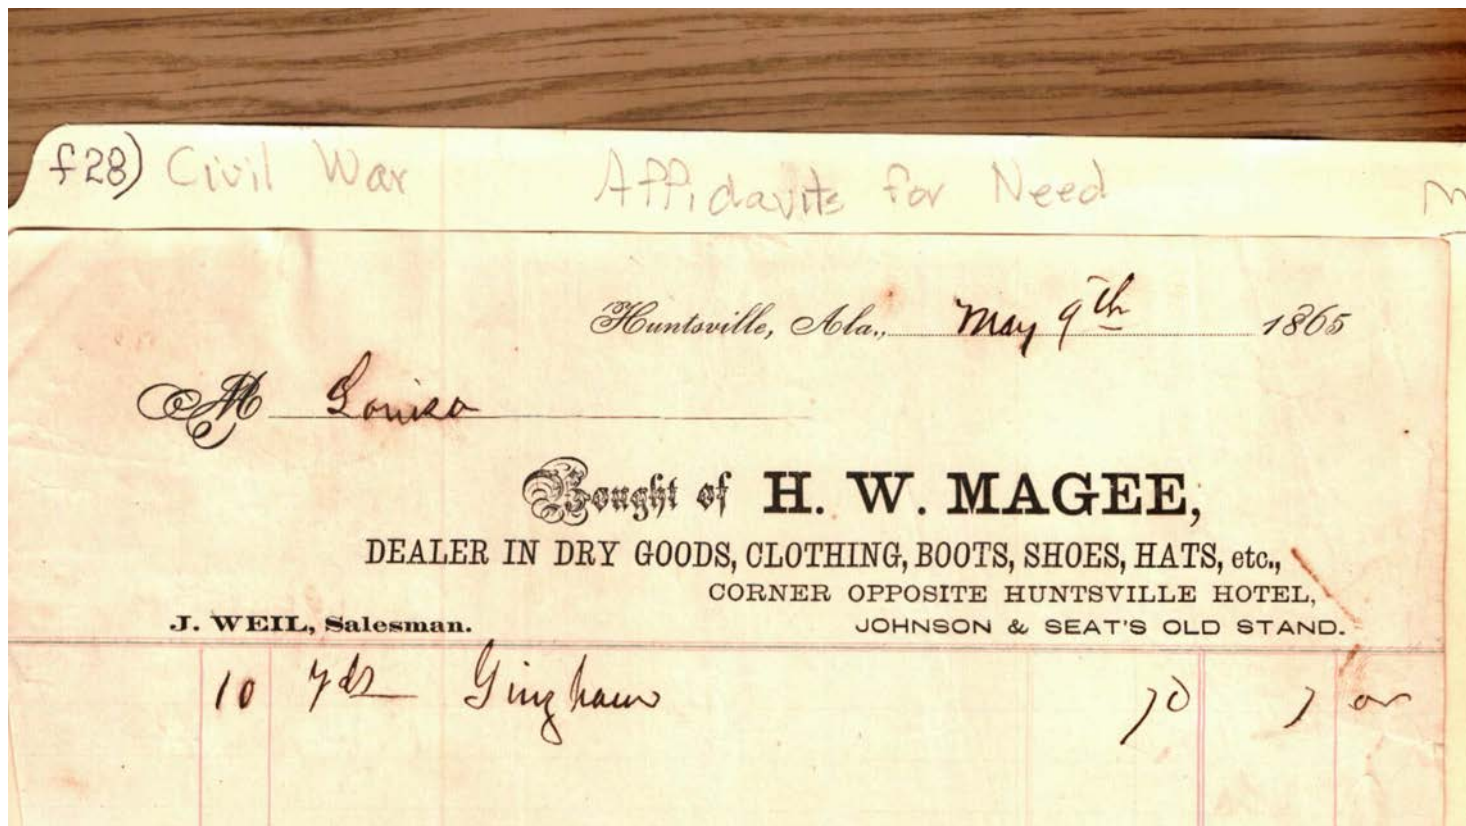 f28) Civil War Affidavits for Need
Huntsville, Ala., May 9th 1865
M Louisa
Bought of H. W. MAGEE,
DEALER IN DRY GOODS, CLOTHING, BOOTS, SHOES, HATS, etc.,
CORNER OPPOSITE HUNTSVILLE HOTEL,
J. WEIL, Salesman. JOHNSON & SEAT'S OLD STAND.
10 yds Gingham 70 7 00